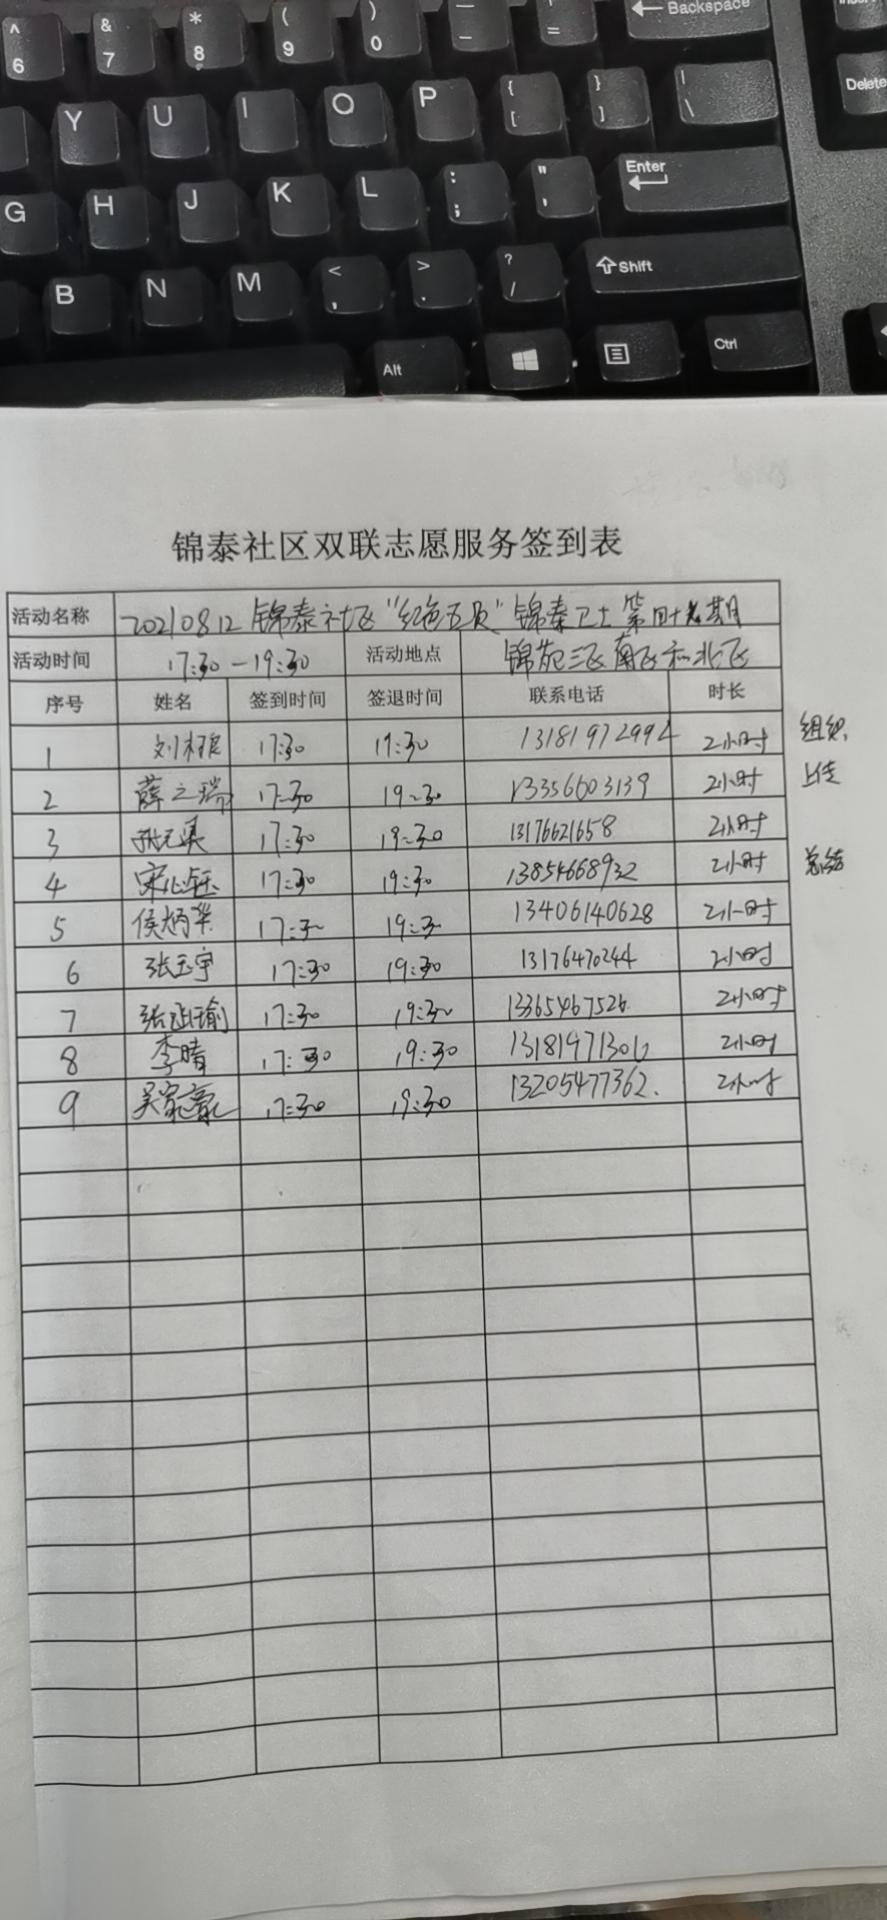 ^ & * ( ) — Backspace Insert
6 7 8 9 0 - =
Y U I O P { } | Delete
[ ] \
G H J K L : " Enter
; '
B N M < > ? Shift
, . /
Alt Ctrl
锦泰社区双联志愿服务签到表
活动名称 20210812锦泰社区“红色五员”锦泰卫士第四十期
活动时间 17:30-19:30 活动地点 锦苑三区南区和北区
序号 姓名 签到时间 签退时间 联系电话 时长
1 17:30 19:30 13181972992 2小时 组织
2 薛之瑞 17:30 19:30 13356603139 2小时 上传
3 17:30 19:30 13176621658 2小时
4 宋心钰 17:30 19:30 13854668932 2小时 总结
5 侯炳华 17:30 19:30 13406140628 2小时
6 张玉宇 17:30 19:30 13176470244 2小时
7 17:30 19:30 13365467526 2小时
8 李晴 17:30 19:30 2小时
9 吴家豪 17:30 19:30 13205477362. 2小时